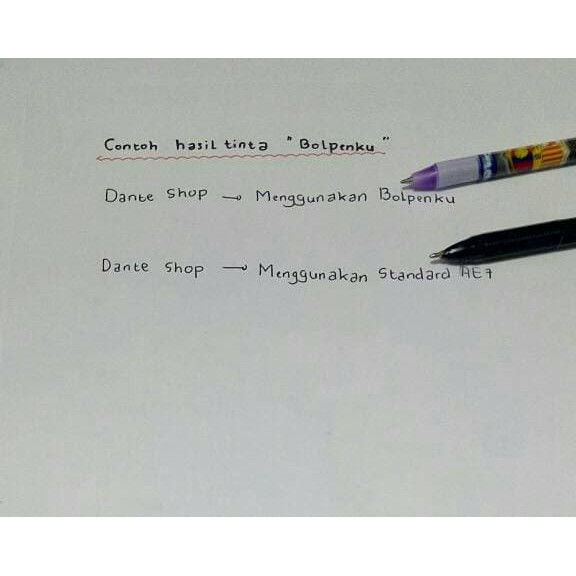 Contoh hasil tinta "Bolpenku"
Dante Shop → Menggunakan Bolpenku
Dante Shop → Menggunakan Standard AE7